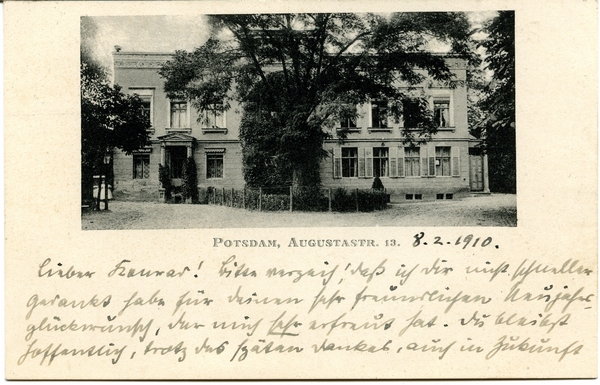 POTSDAM, AUGUSTASTR. 13. 8.2.1910.
Lieber Konrad! Bitte verzeih', daß ich Dir nicht schneller
gedankt habe für deinen sehr freundlichen Neujahrs-
glückwunsch, der mich sehr erfreut hat. Du bleibst
hoffentlich, trotz des späten Dankes, auch in Zukunft